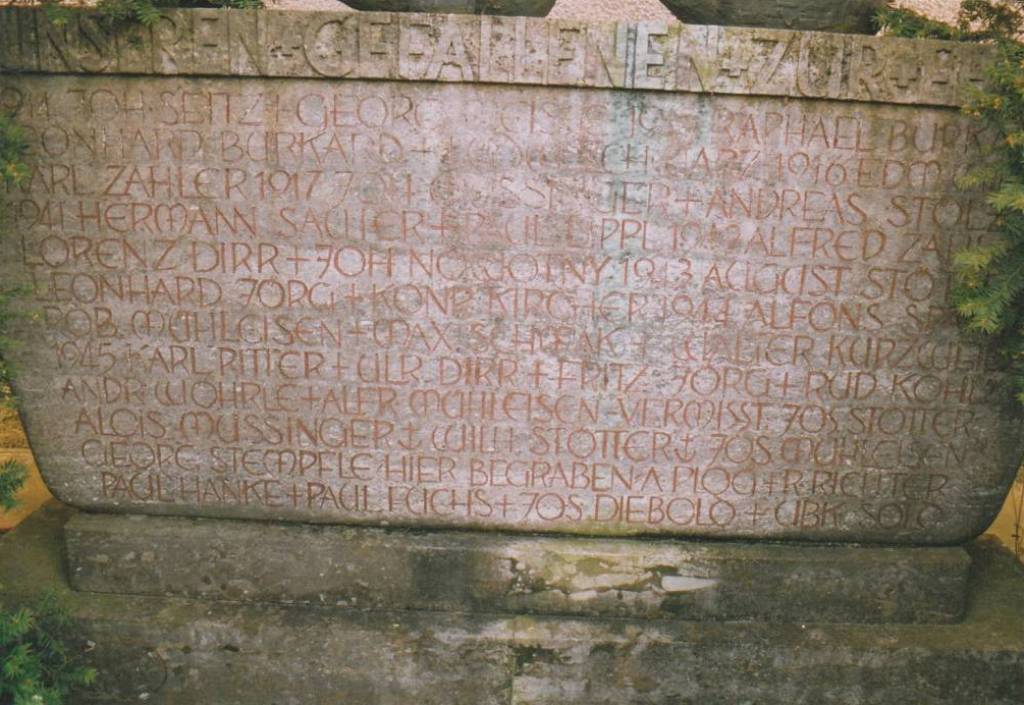 UNSEREN + GEFALLENEN + ZUR +
1914 JOH. SEITZ + GEORG RAPHAEL BURK
LEONHARD BURKARD + 1916 EDM
KARL ZAHLER 1917 JOH + ANDREAS STOLZ
1941 HERMANN SAUTER + PAUL LIPPL 1942 ALFRED
LORENZ DIRR + JOH NOKSOTNY 1943 AUGUST
LEONHARD JÖRG + KONR. KIRCHER 1944 ALFONS
ROB. MÜHLEISEN + MAX SCHWENK + WALTER KURZ
1945 KARL RITTER + ULR. DIRR + FRITZ JÖRG + RUD KOHL
ANDR. WÖHRLE + ALFR MÜHLEISEN VERMISST: JOS STOTTER
ALOIS MUSSINGER + WILH STOTTER + JOS MÜHLEISEN
GEORG STEMPFLE HIER BEGRABEN: A PLOG + R. RICHTER
PAUL HANKE + PAUL FUCHS + JOS DIEBOLD + UBK SOLD